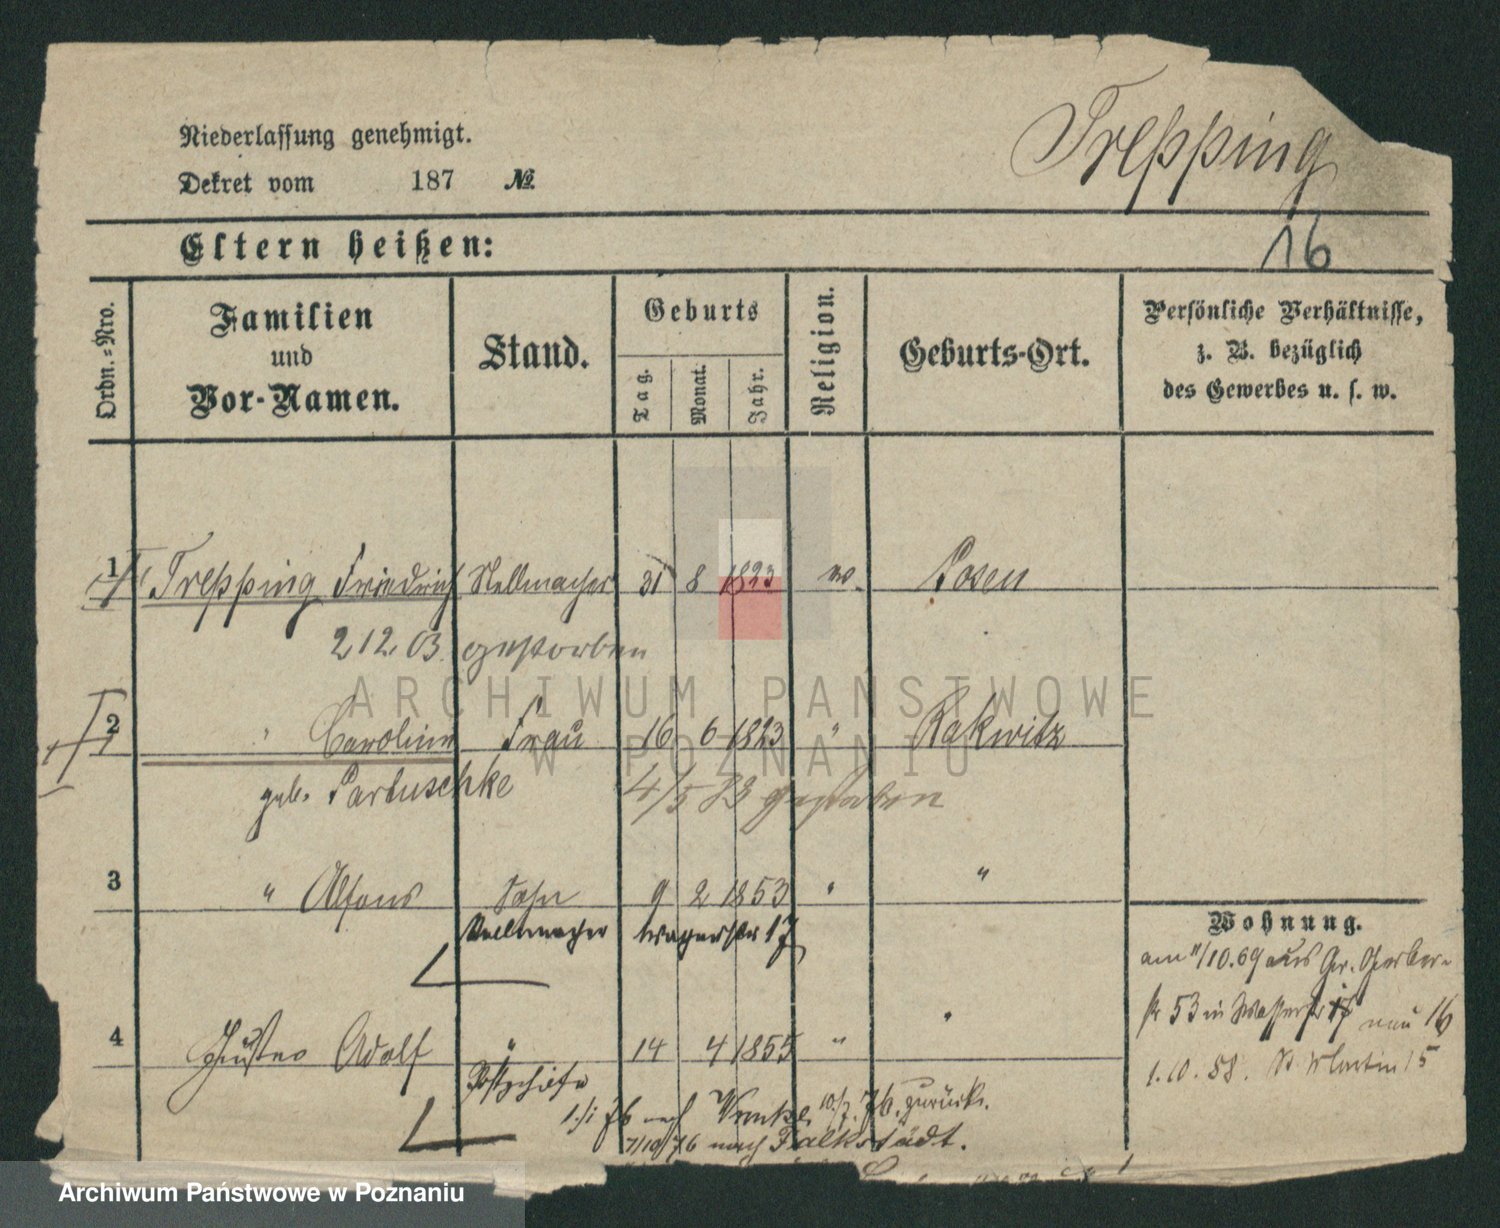 Niederlassung genehmigt.
Dekret vom 187 №
Trepping
Eltern heißen:
16
Ordn.=Nro.
Familien
und
Vor-Namen.
Stand.
Geburts
Tag.
Monat.
Jahr.
Religion.
Geburts-Ort.
Persönliche Verhältnisse,
z. B. bezüglich
des Gewerbes u. s. w.
1 Trepping Friedrich Stellmacher 31 8 1823 Posen
2 12. 03. gestorben
ARCHIWUM PAŃSTWOWE
W POZNANIU
2 " Caroline Frau 16 6 1823 " Rakwitz
geb. Partuschke 4/5 83 gestorben
3 " Alfons Sohn 9 2 1853 " "
Stellmacher Wasserstr 17
Wohnung.
am 11/10. 69 aus Gr. Gerber-
str 53 in Wasserstr 17 neu 16
4 Gustav Adolf " 14 4 1855 " "
1. 10. 58. St Martin 15
76 nach 76. zurück.
7/10 76 nach Falkstädt.
Archiwum Państwowe w Poznaniu